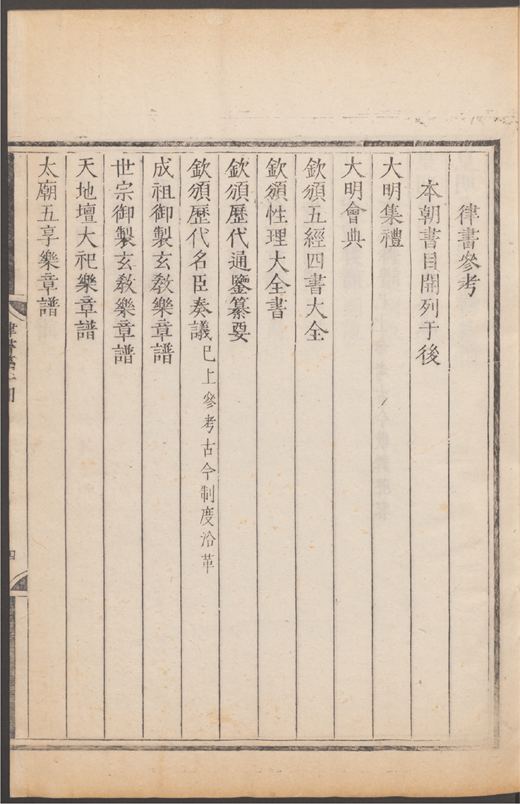 律書參考
本朝書目開列于後
大明集禮
大明會典
欽頒五經四書大全
欽頒性理大全書
欽頒歷代通鑒纂要
欽頒歷代名臣奏議已上參考古今制度沿革
成祖御製玄教樂章譜
世宗御製玄教樂章譜
天地壇大祀樂章譜
太廟五享樂章譜
四